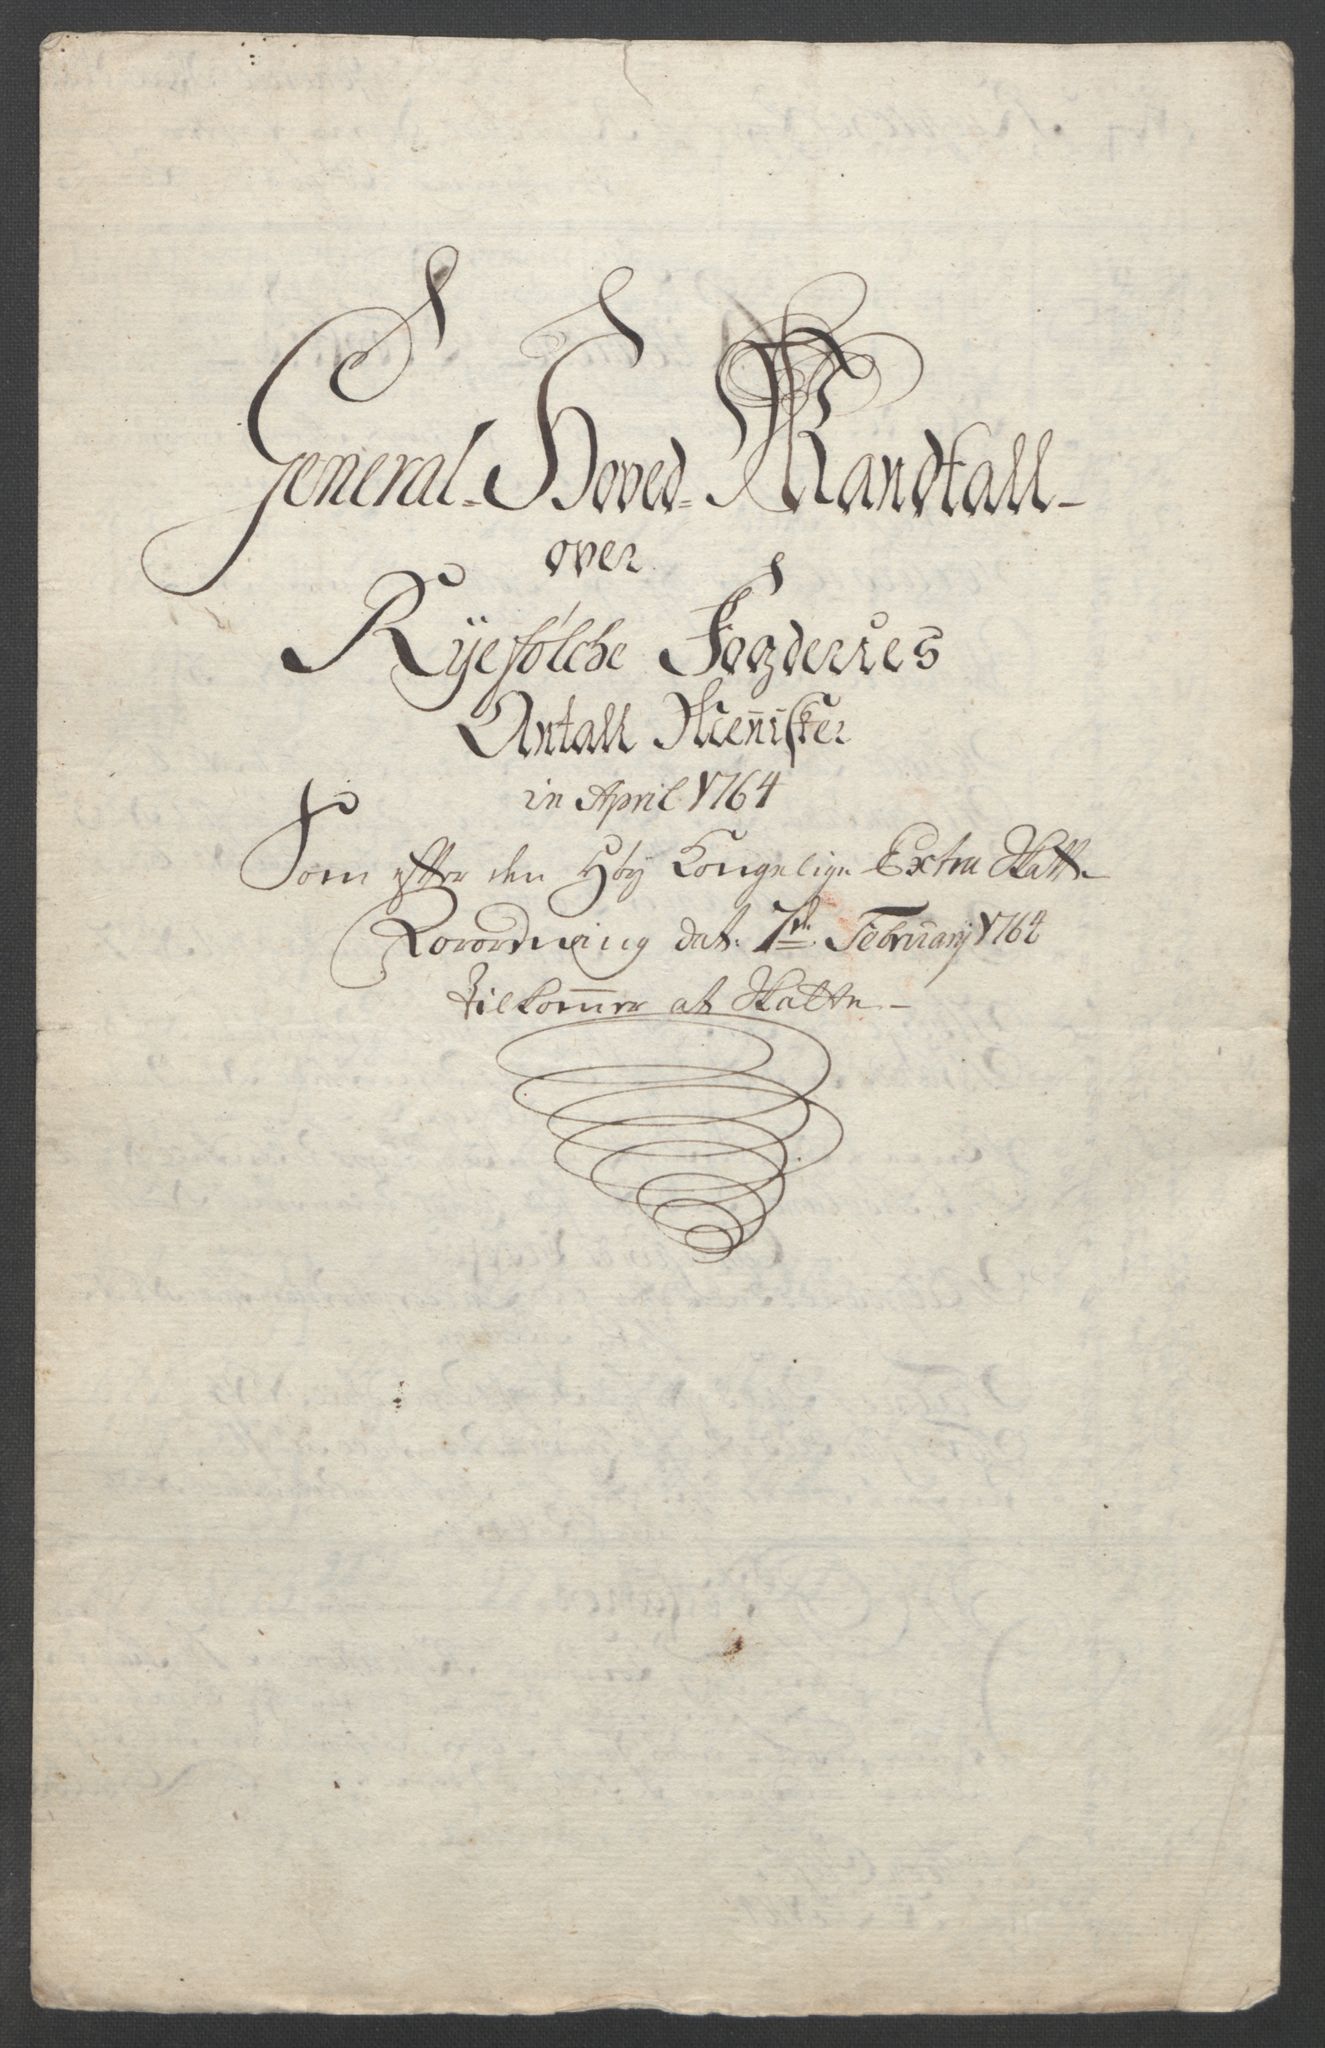 General-Hoved-Mandtall-
over
Ryefölche Fogderies
Antall Menisker
in April 1764
Som efter den Høy Kongelige Extra Skatte
Forordning dat: 7de February 1764
Tilkommer at Skatte-